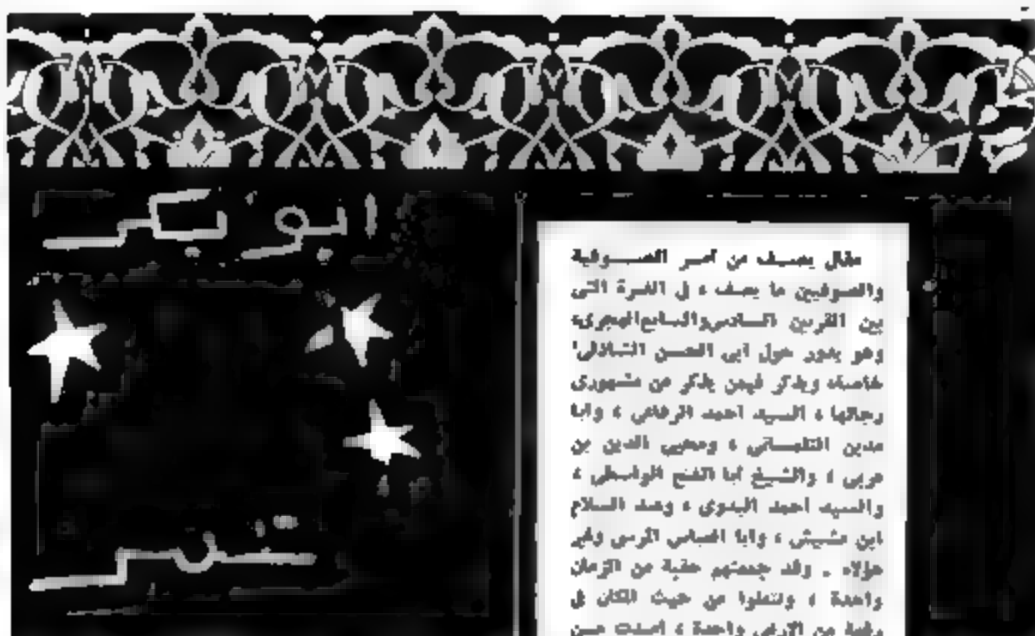 ابو بكر
مقال يصف من أمر الصوفية
والصوفيين ما يصف ، في الفترة التى
بين القرنين السادس والسابع الهجرى،
وهو يدور حول ابى الحسن الشاذلى
خاصة، ويذكر فيمن يذكر من مشهورى
رجالها ، السيد احمد الرفاعى ، وابا
مدين التلمسانى ، ومحيى الدين بن
عربى ، والشيخ ابا الفتح الواسطى ،
والسيد أحمد البدوى ، وعبد السلام
ابن مشيش ، وابا العباس المرسى وغير
هؤلاء . وقد جمعتهم حقبة من الزمان
واحدة ، وانتقلوا من حيث المكان فى
رقعة من الارض واحدة ، امتدت من